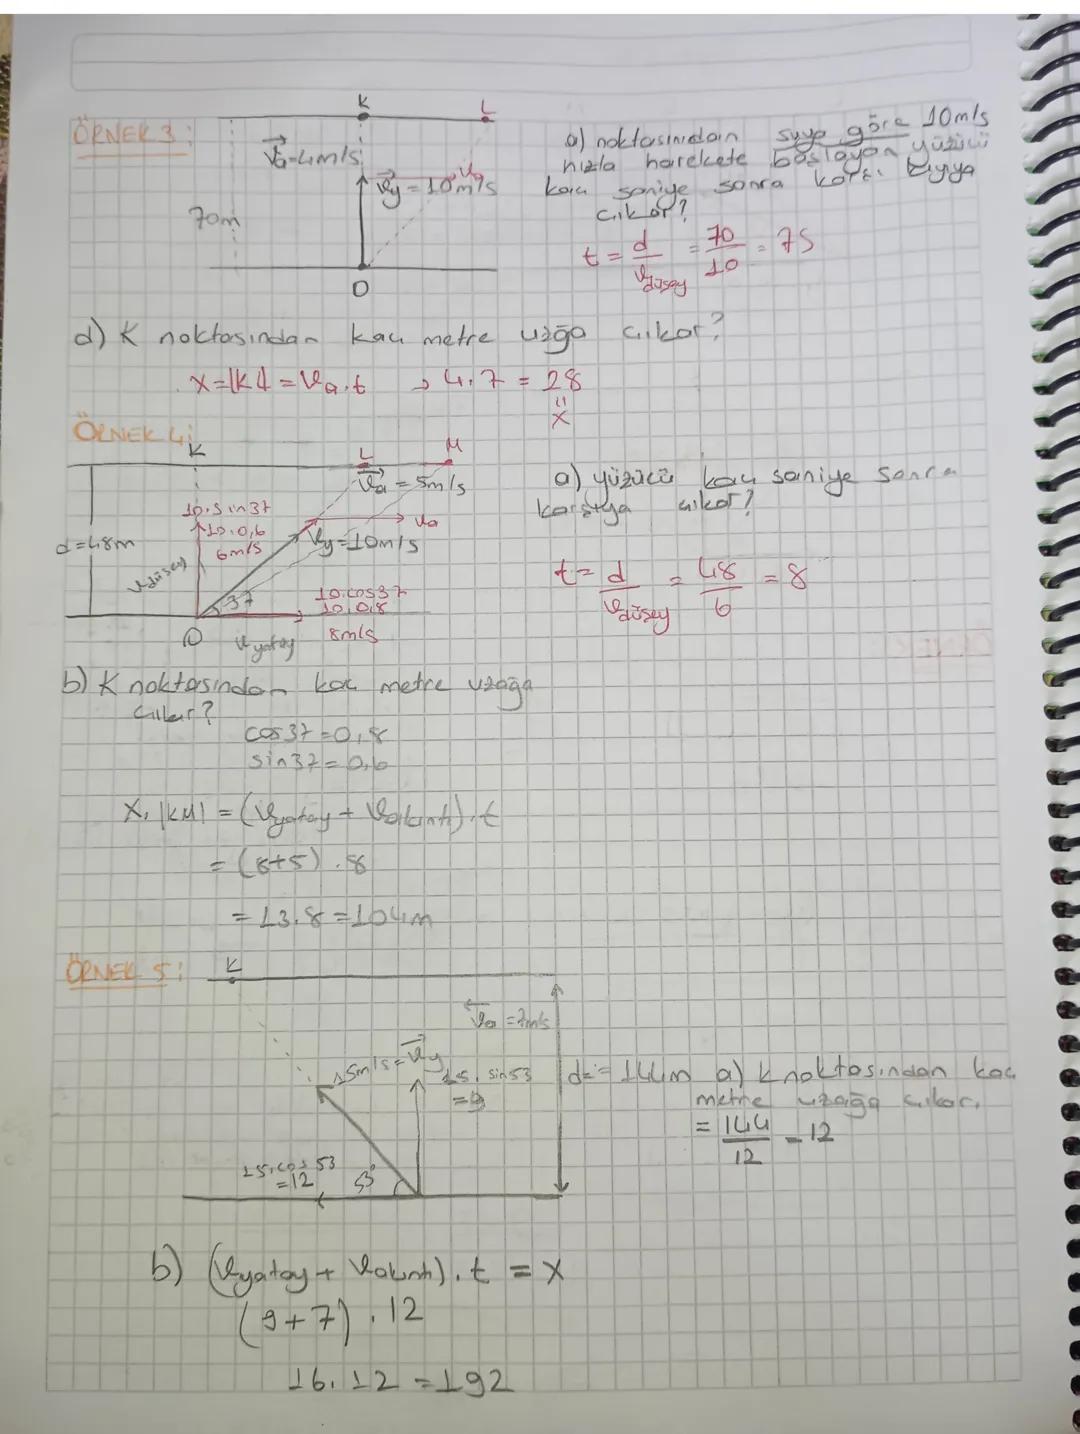 ÖRNEK 3:
K L
Va=4m/s
Vy=10m/s
Va
70m
O
a) noktasından suya göre 10m/s
hızla harekete başlayan yüzücü
kaç saniye sonra karşı kıyıya
çıkar?
t = d/Vdüşey = 70/10 = 7S
d) K noktasından kaç metre uzğa çıkar?
x=|KL| = Va.t → 4.7 = 28
=
x
ÖRNEK 4:
K L M
Va = 5m/s
10.sin37
10.0,6
6m/s
Va
Vy=10m/s
d=48m
Vdüşey
37
10.cos37
10.0,8
8m/s
O
Vyatay
a) yüzücü kaç saniye sonra
karşıya çıkar?
t = d/Vdüşey = 48/6 = 8
b) K noktasından kaç metre uzağa
çıkar?
cos37=0,8
sin37=0,6
X, |KM| = (Vyatay + Vakıntı).t
= (8+5).8
= 13.8 = 104m
ÖRNEK 5:
K
Va = 7m/s
15m/s = Vy
15. sin53
=9
15.cos 53
=12
53°
d = 144m
a) K noktasından kaç
metre uzağa çıkar.
= 144/12 = 12
b) (Vyatay + Vakıntı).t = x
(9+7).12
16.12 = 192